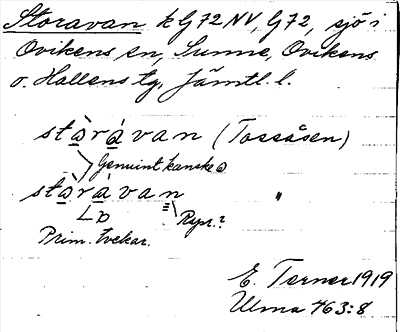 Storavan k G72 NV, G72, sjö i
Ovikens sn, Sunne, Ovikens
o. Hallens tg, Jämtl. l.
stàrávan (Tossåsen)
Genuint kanske
stàrávan "
Rspr.?
Prim. tvekar.
E. Terner 1919
Ulma 463:8